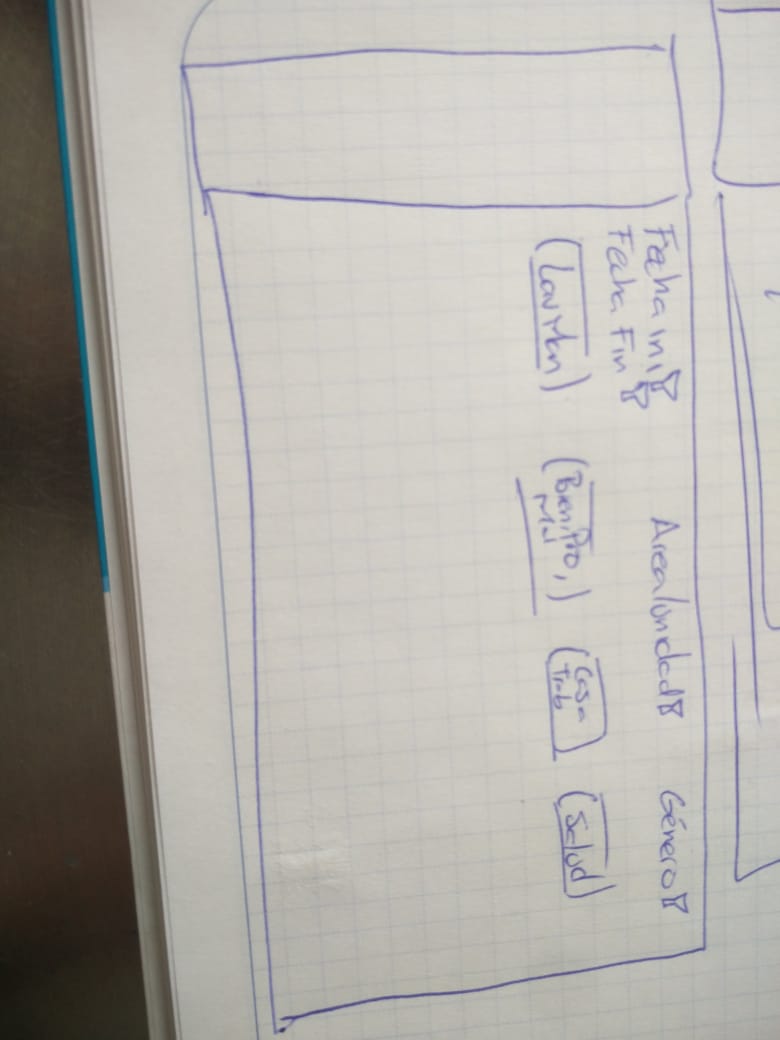 Fecha ini
Fecha Fin
Area/unidad
Género
(Lav Man)
(Bien, Pro,)
(Casa
Trab)
(Salud)